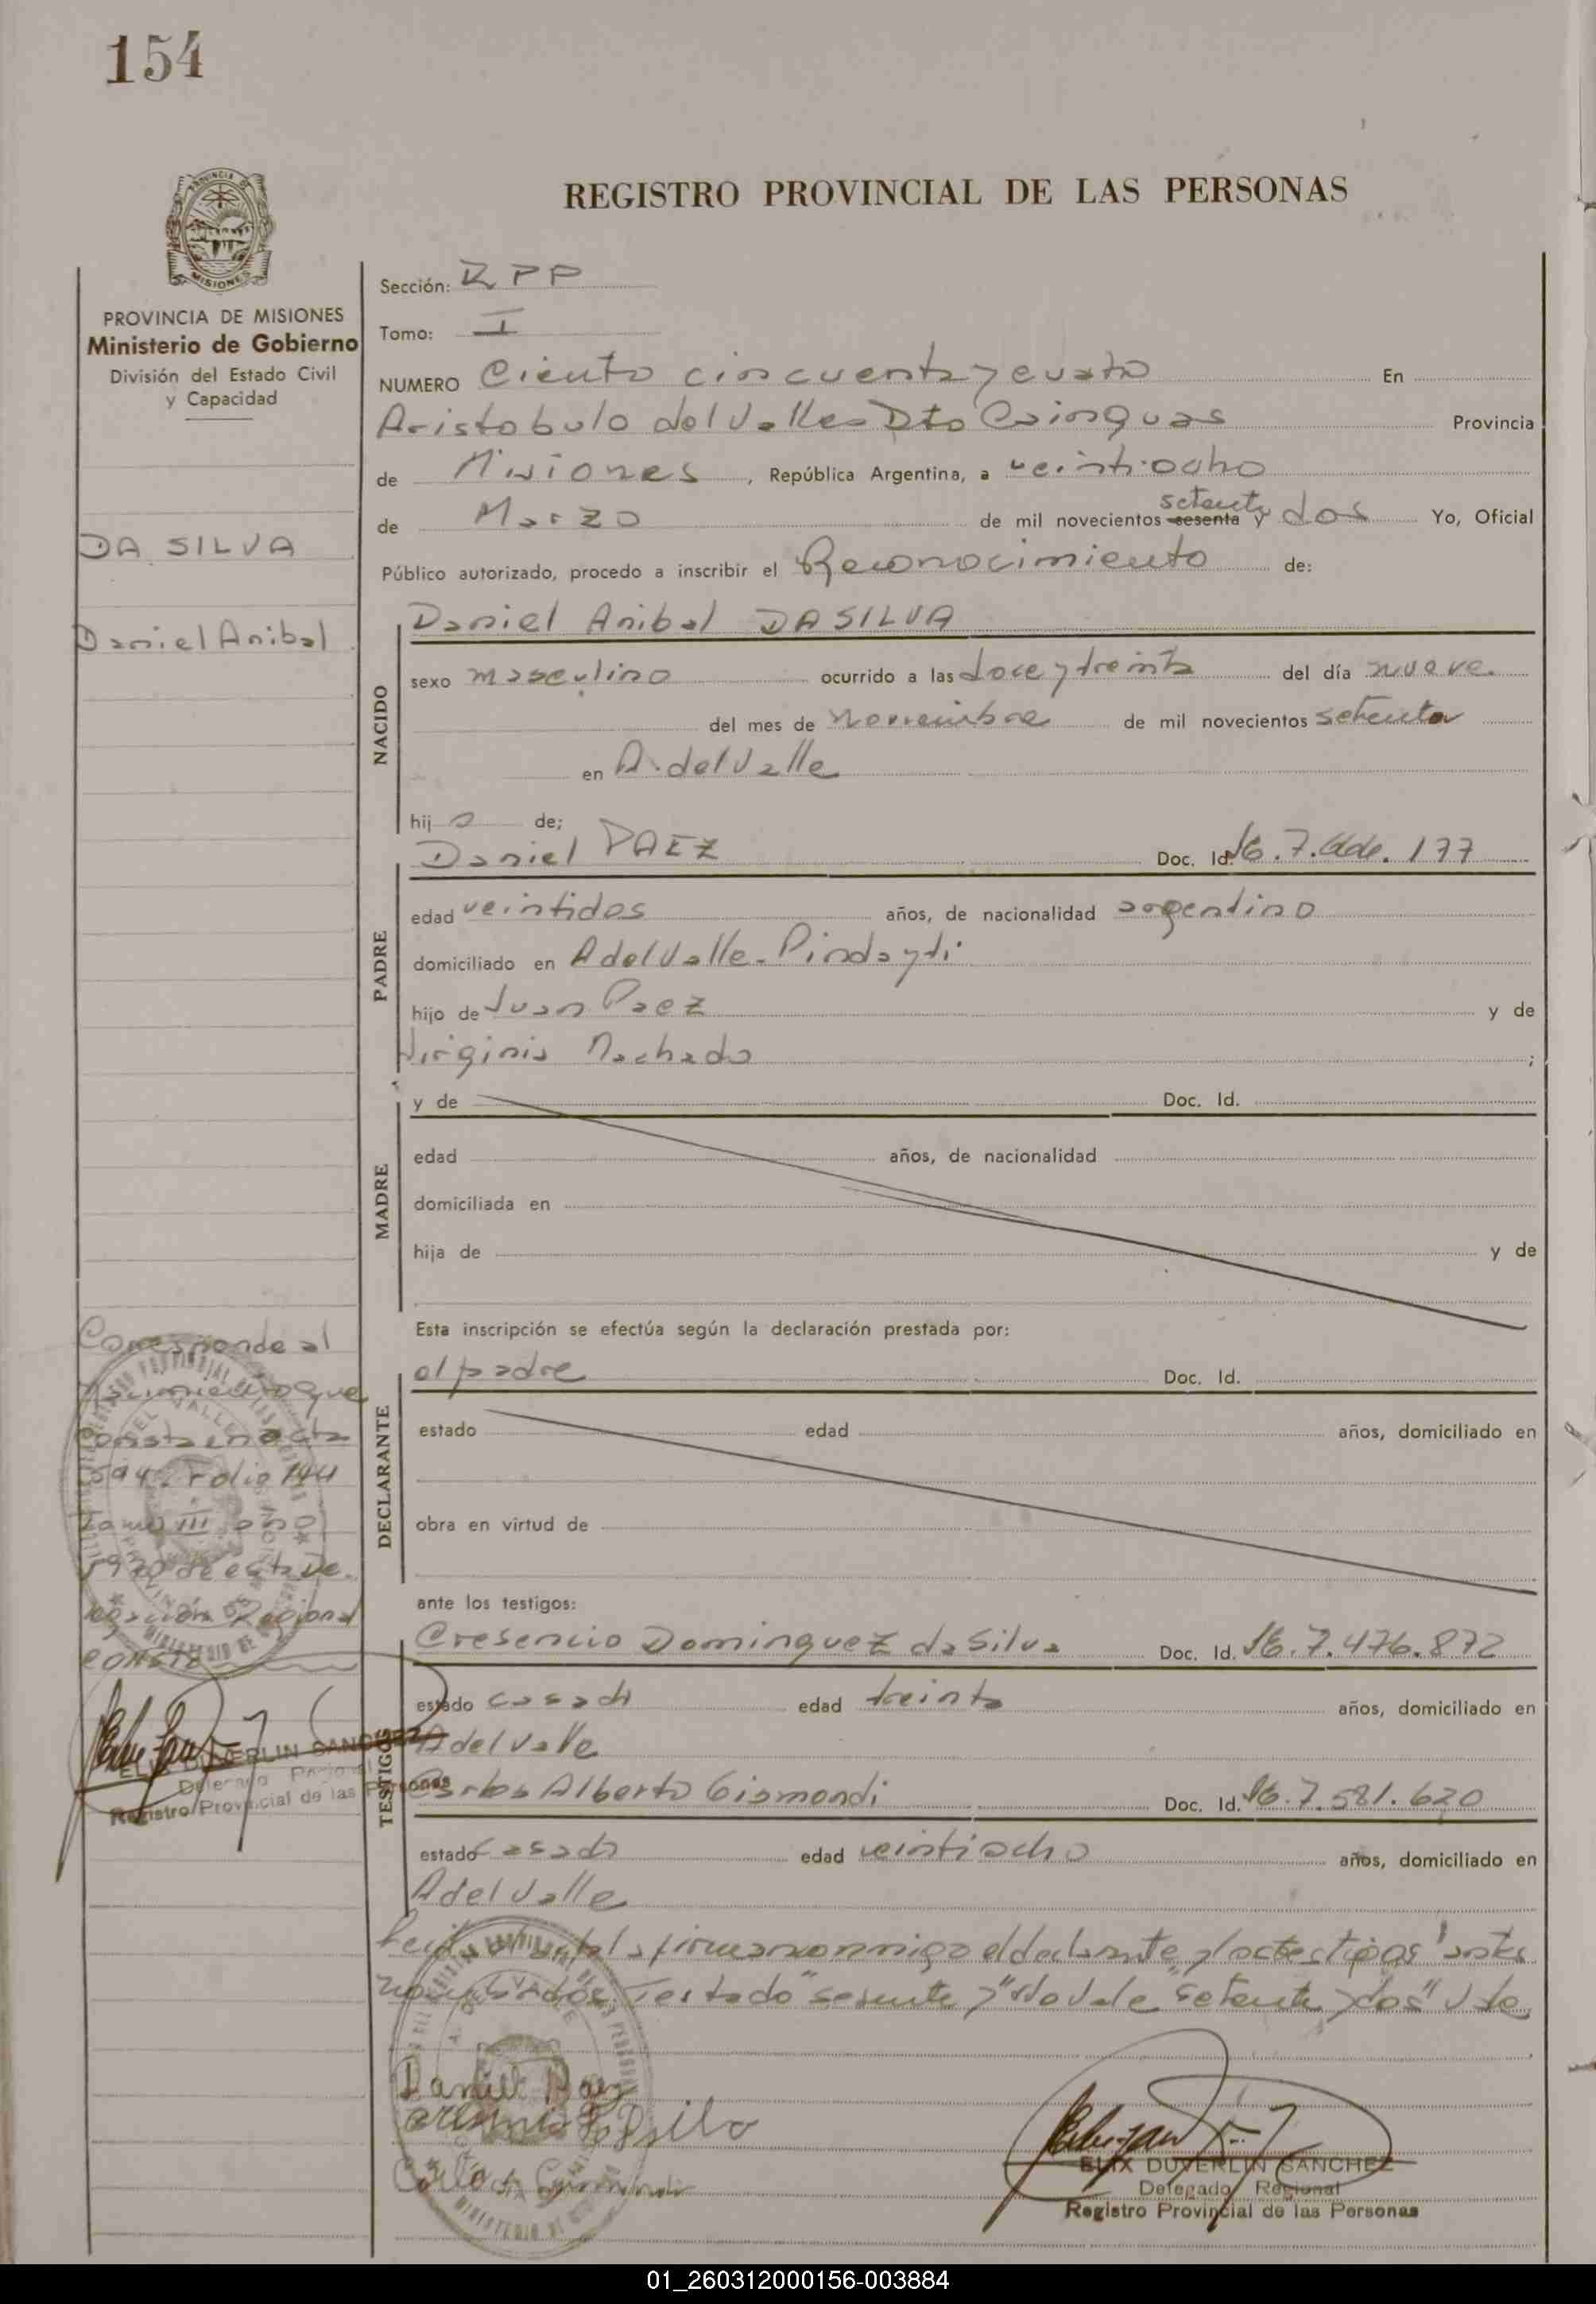 154
REGISTRO PROVINCIAL DE LAS PERSONAS
PROVINCIA DE MISIONES
Ministerio de Gobierno
División del Estado Civil
y Capacidad
DA SILVA
Daniel Anibal
Sección: RPP
Tomo: I
NUMERO Ciento cincuenta y cuatro En
Aristobulo del Valle Dto Cainguas Provincia
de Misiones, República Argentina, a veintiocho
setenta
de Marzo de mil novecientos sesenta y dos Yo, Oficial
Público autorizado, procedo a inscribir el Reconocimiento de:
NACIDO
Daniel Anibal DA SILVA
sexo masculino ocurrido a las doce y treinta del día nueve
del mes de noviembre de mil novecientos setenta
en A. del Valle
hijo de;
PADRE
Daniel PAEZ Doc. Id. 177
edad veintidos años, de nacionalidad argentino
domiciliado en A del Valle - Pindayti
hijo de Juan Paez y de
Virginia Machado ;
MADRE
y de Doc. Id.
edad años, de nacionalidad
domiciliada en
hija de y de
Esta inscripción se efectúa según la declaración prestada por:
DECLARANTE
el padre Doc. Id.
estado edad años, domiciliado en
obra en virtud de
ante los testigos:
TESTIGOS
Cresencio Dominguez da Silva Doc. Id. 7.476.872
estado casado edad treinta años, domiciliado en
A del Valle
Carlos Alberto Gismondi Doc. Id. 7.581.620
estado casado edad veintiocho años, domiciliado en
A del Valle
el acta la firman conmigo el declarante y los testigos antes
nombrados Testado "sesenta y" no vale "setenta y dos" vale
Corresponde al
nacimiento que
consta en acta
594 folio 144
tomo III año
1970 de esta De
legación Regional
conste
ELIX DUVERLIN SANCHEZ
Delegado Regional
Registro Provincial de las Personas
Daniel Paez
ELIX DUVERLIN SANCHEZ
Delegado Regional
Registro Provincial de las Personas
01_260312000156-003884